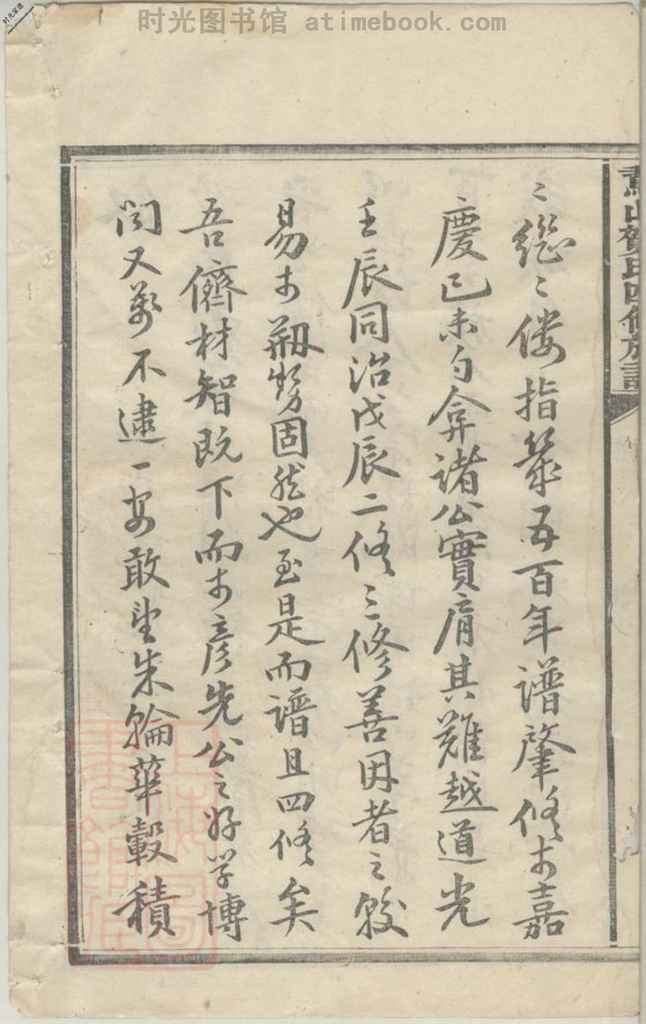 时光图书馆 - atimebook.com
山賀氏四修族譜
僂指筭五百年譜肇修於嘉
慶己未勻弇諸公實肩其難越道光
壬辰同治戊辰二修三修善因者之較
易於剙勢固然也至是而譜且四修矣
吾儕材智既下而於彥先公之好学博
聞又萬不逮一安敢望朱輪華轂積